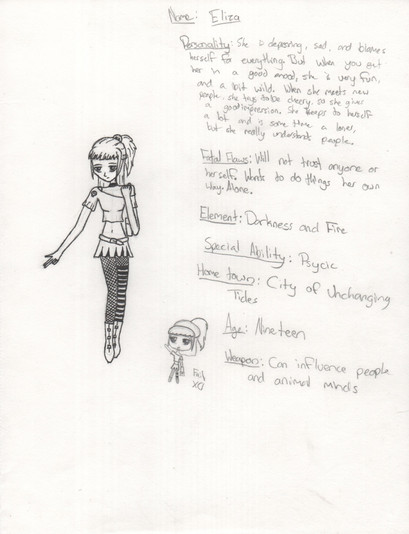 Name: Eliza
Personality: She is depressing, sad, and blames
herself for everything. But when you get
her in a good mood, she is very fun,
and a bit wild. When she meets new
people, she trys to be cheery, so she gives
a good impression. She keeps to herself
a lot and is some time a loner,
but she really understands people.
Fatal Flaws: Will not trust anyone or
herself. Wants to do things her own
way. Alone.
Element: Darkness and Fire
Special Ability: Psycic
Home town: City of Unchanging
Tides
Age: Nineteen
Weapon: Can influence people
and animal minds